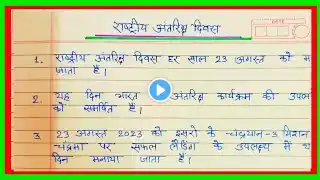 DATE
राष्ट्रीय अंतरिक्ष दिवस
1. राष्ट्रीय अंतरिक्ष दिवस हर साल 23 अगस्त को म
जाता है।
2. यह दिन भारत अंतरिक्ष कार्यक्रम की उपल
को समर्पित है।
3. 23 अगस्त 2023 को इसरो के चंद्रयान-3 मिशन
चंद्रमा पर सफल लैंडिंग के उपलक्ष्य में य
दिन मनाया जाता है।